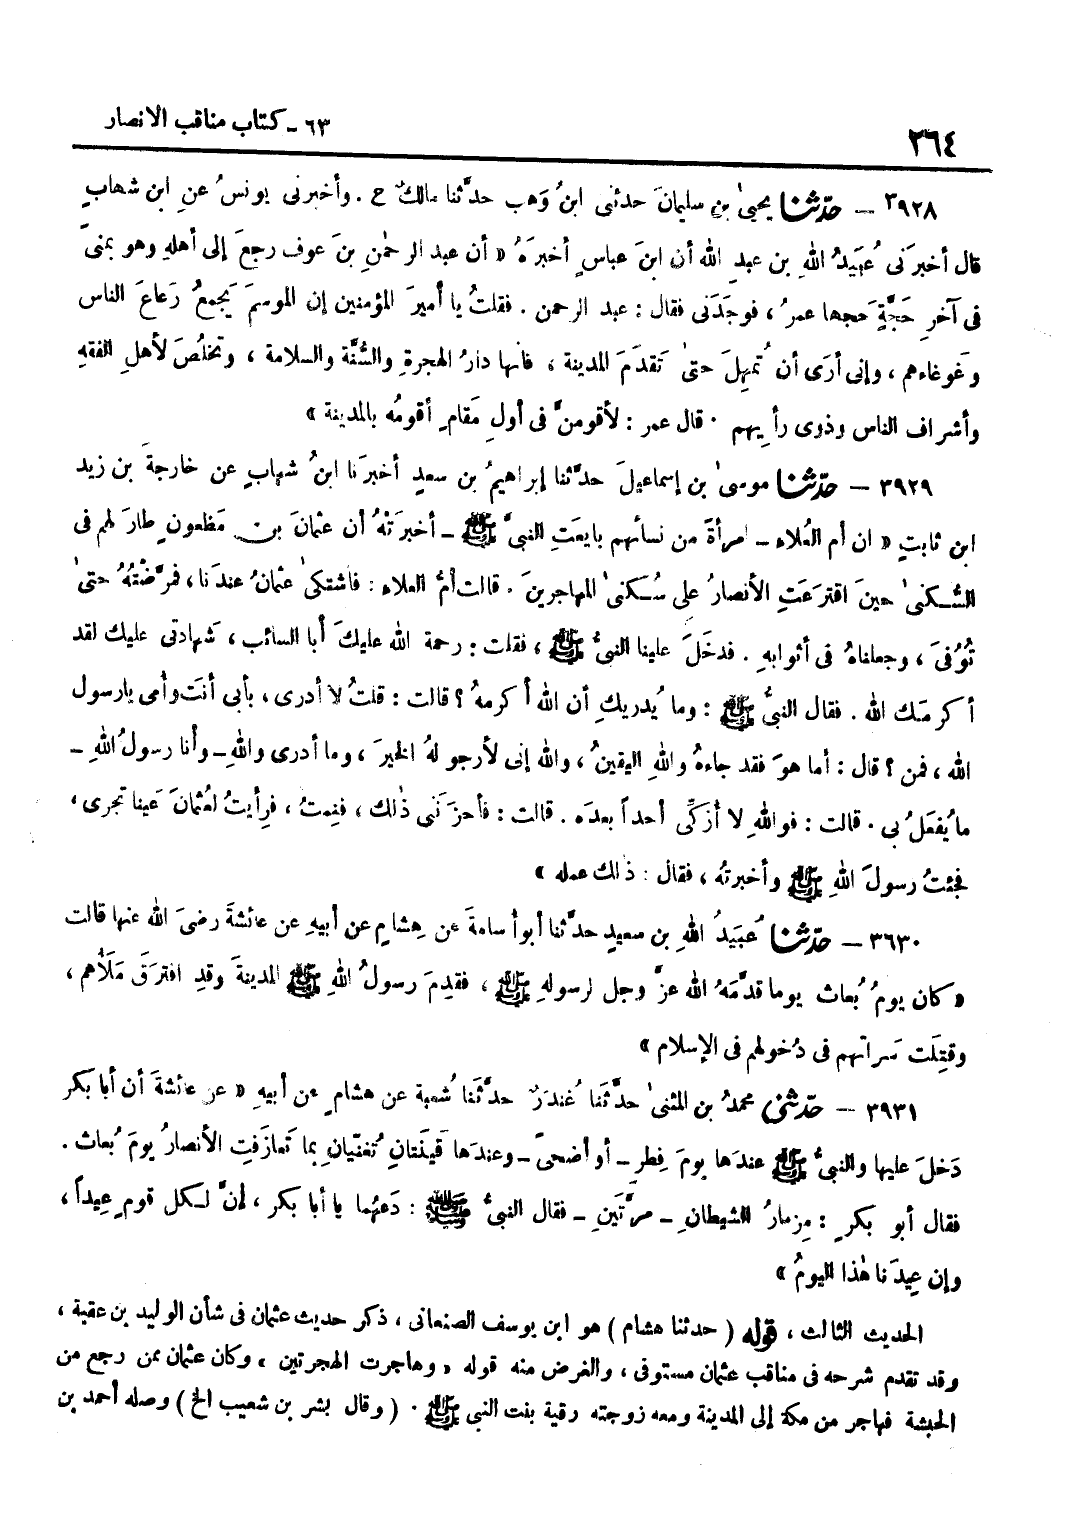 ٢٦٤
٦٣ - كتاب مناقب الأنصار
٣٩٢٨ – حدّثنا يحيىٰ بن سليمانَ حدثنى ابنُ وَهب حدَّثنا مالكٌ ح . وأخبرنى يونسُ عنِ ابن شهابٍ
قال أخبرَنى عُبَيدُ اللهِ بن عبدِ الله أن ابنَ عباسٍ أخبرَهُ « أن عبدَ الرحمٰنِ بنَ عوف رجعَ إلى أهلهِ وهو بمنىً
فى آخرِ حَجَّةٍ حجها عمرُ ، فوجَدَنى فقال : عبد الرحمن . فقلتُ يا أميرَ المؤمنين إن الموسمَ يَجمعُ رَعاعَ الناس
وغَوغاءهم ، وإنى أرَى أن تُمهِلَ حتىٰ تَقدَمَ المدينة ، فانها دارُ الهجرةِ والسُّنَّة والسلامة ، وتخلُصَ لأهلِ الفقهِ
وأشراف الناس وذوى رأيِهم . قال عمر : لأقومنَّ فى أولِ مَقامٍ أقومُه بالمدينة »
٣٩٢٩ – حدّثنا موسىٰ بن إسماعيلَ حدَّثنا إبراهيمُ بن سعدٍ أخبرَنا ابنُ شهابٍ عن خارجةَ بن زيد
ابن ثابتٍ « ان أم العُلاء – امرأةً من نسائهم بايعَتِ النبىَّ ﷺ – أخبرَتْهُ أن عثمانَ بن مَظعونٍ طارَ لهم فى
السُّكنىٰ حينَ اقترَعَتِ الأنصارُ على سُكنىٰ المهاجرينَ . قالت أمُّ العلاء : فاشتكىٰ عثمانُ عندَنا ، فمرَّضْتُهُ حتىٰ
تُوُفىَ ، وجعلناهُ فى أثوابهِ . فدخَلَ علينا النبىُّ ﷺ ، فقلت : رحمة الله عليكَ أبا السائب ، شَهادتى عليك لقد
أكرمَك الله . فقال النبىُّ ﷺ : وما يُدريكِ أن الله أكرمهُ ؟ قالت : قلتُ لا أدرى ، بأبى أنتَ وأمى يارسول
الله ، فمن ؟ قال : أما هوَ فقد جاءهُ واللهِ اليقينُ ، والله إنى لأرجو لهُ الخيرَ ، وما أدرى واللهِ – وأنا رسولُ اللهِ –
ما يُفعَلُ بى . قالت : فواللهِ لا أزكِّى أحداً بعدَه . قالت : فأحزَنَنى ذٰلك ، فنِمتُ ، فرأيتُ لعُثمانَ عَينا تجرى ،
فجئتُ رسولَ اللهِ ﷺ وأخبرتهُ ، فقال : ذٰلك عمله »
٣٦٣٠ – حدّثنا عُبَيدُ اللهِ بن سعيدٍ حدَّثنا أبو أسامةَ عن هِشامٍ عن أبيهِ عن عائشةَ رضىَ الله عنها قالت
« كان يومُ بُعاث يوما قدَّمَهُ الله عزَّ وجل لرسولهِ ﷺ ، فقدِمَ رسولُ اللهِ ﷺ المدينةَ وقدِ افترَقَ مَلَأُهم ،
وقتِلَت سَراتهم فى دُخولهم فى الإسلام »
٣٩٣١ – حدّثنى محمدُ بن المثنىٰ حدَّثَنا غُندَرٌ حدَّثَنا شُعبة عن هشامٍ عن أبيهِ « عن عائشةَ أن أبا بكر
دَخلَ عليها والنبىُّ ﷺ عندَها يومَ فِطرٍ – أو أضحىً – وعندَها قَينَتانِ تُغنّيان بِما تَعازَفتِ الأنصارُ يومَ بُعاث .
فقال أبو بكرٍ : مِزمارُ الشيطانِ – مرَّتَينِ – فقال النبىُّ ﷺ : دَعهُما يا أبا بكر ، إنَّ لكل قومٍ عِيداً ،
وإن عِيدَنا هٰذا اليومُ »
الحديث الثالث ، قوله ( حدثنا هشام ) هو ابن يوسف الصنعانى ، ذكر حديث عثمان فى شأن الوليد بن عقبة ،
وقد تقدم شرحه فى مناقب عثمان مستوفى ، والغرض منه قوله « وهاجرت الهجرتين » وكان عثمان ممن رجع من
الحبشة فهاجر من مكة إلى المدينة ومعه زوجته رقية بنت النبى ﷺ . ( وقال بشر بن شعيب الخ ) وصله أحمد بن